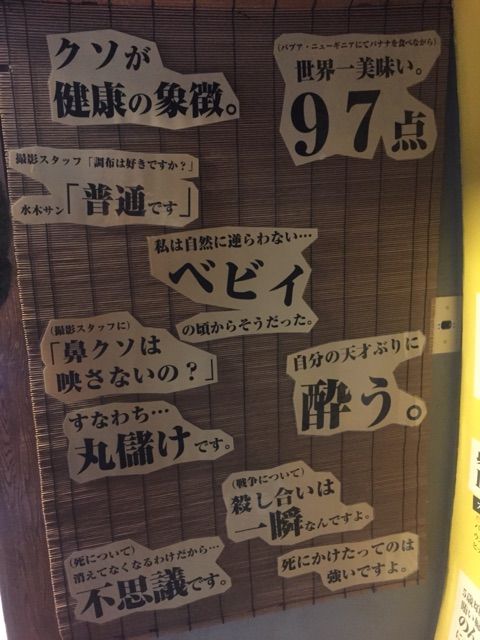 クソが
健康の象徴。
(パプア・ニューギニアにてバナナを食べながら)
世界一美味い。
97点
撮影スタッフ「調布は好きですか?」
水木サン「普通です」
私は自然に逆らわない…
ベビィ
の頃からそうだった。
(撮影スタッフに)
「鼻クソは
映さないの?」
自分の天才ぶりに
酔う。
すなわち…
丸儲けです。
(戦争について)
殺し合いは
一瞬なんですよ。
(死について)
消えてなくなるわけだから…
不思議です。
死にかけたってのは
強いですよ。